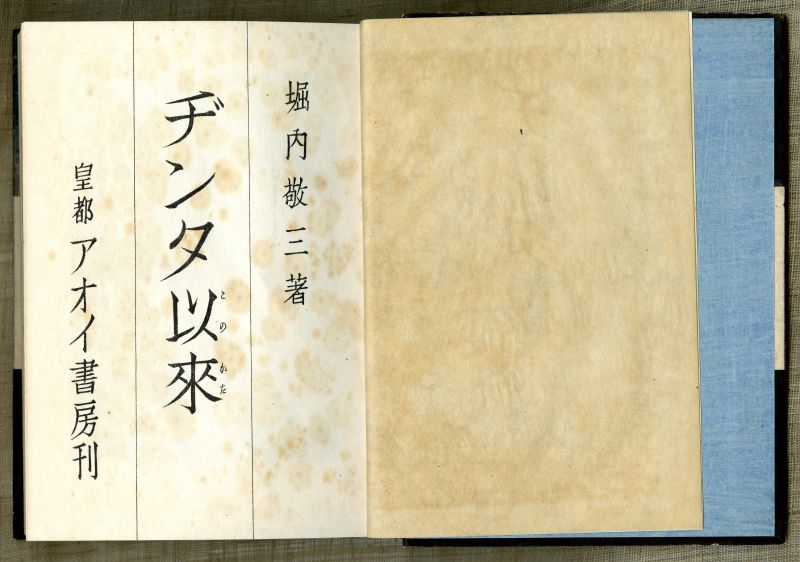 堀内敬三著
ヂンタ以來
このかた
皇都アオイ書房刊